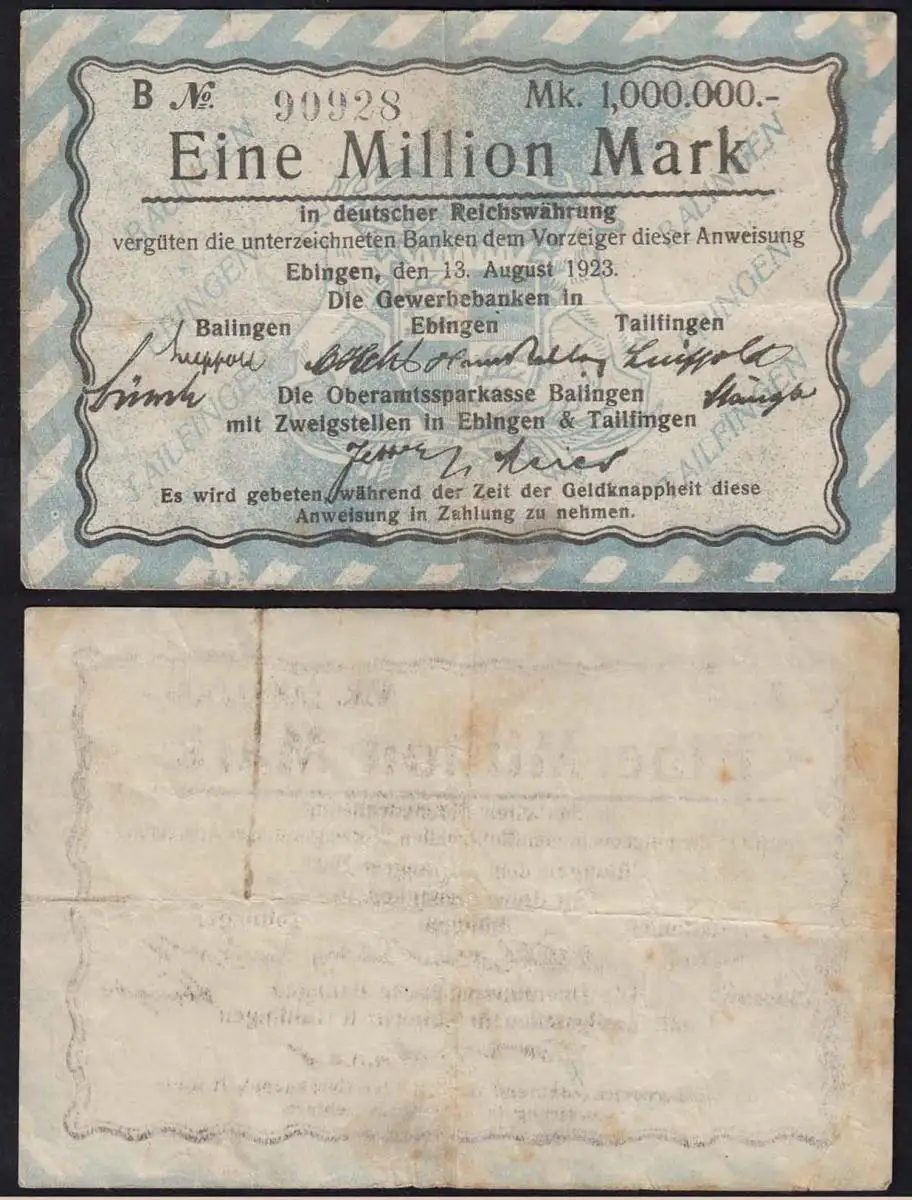 B No. 90928 Mk. 1,000.000.-
Eine Million Mark
in deutscher Reichswährung
vergüten die unterzeichneten Banken dem Vorzeiger dieser Anweisung
Ebingen, den 13. August 1923.
Die Gewerbebanken in
Balingen Ebingen Tailfingen
Die Oberamtssparkasse Balingen
mit Zweigstellen in Ebingen & Tailfingen
Es wird gebeten, während der Zeit der Geldknappheit diese
Anweisung in Zahlung zu nehmen.
BALINGEN
EBINGEN
TAILFINGEN
BALINGEN
EBINGEN
TAILFINGEN